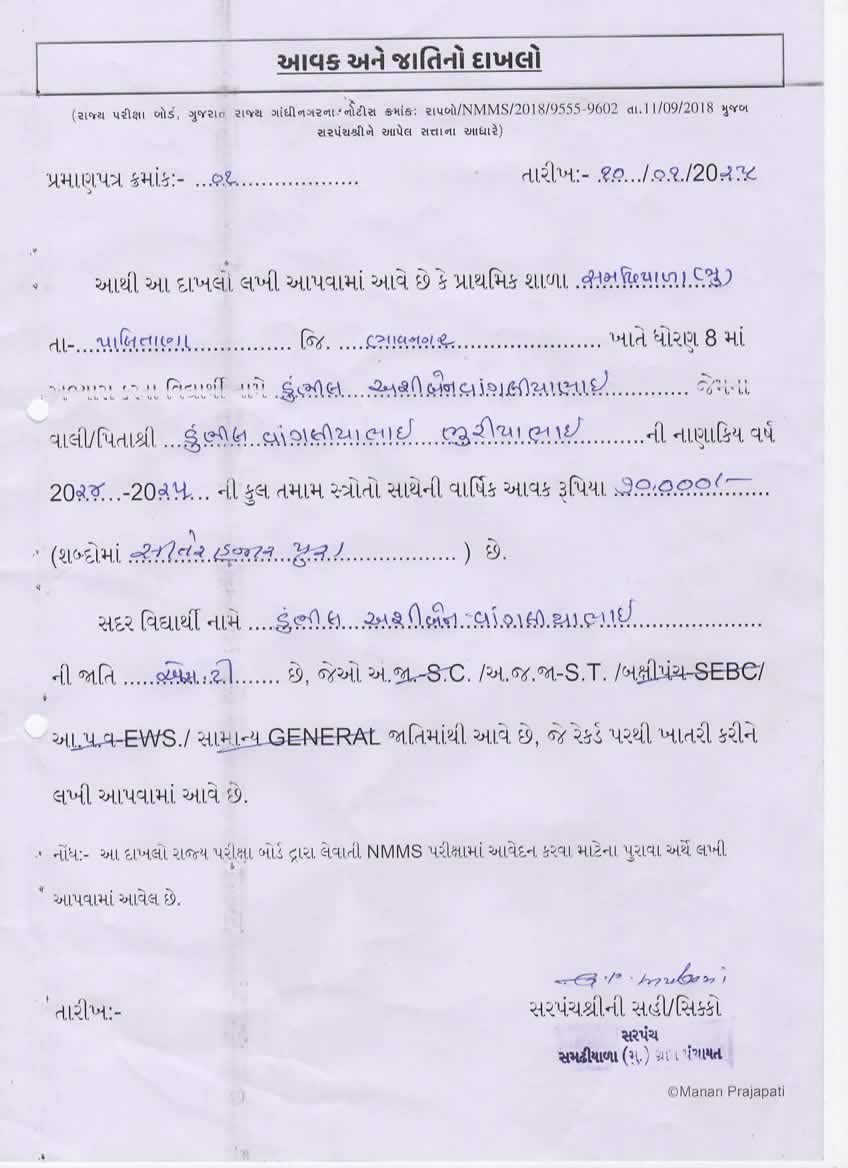 આવક અને જાતિનો દાખલો
(રાજ્ય પરીક્ષા બોર્ડ, ગુજરાત રાજ્ય ગાંધીનગરના નોટીસ ક્રમાંક: રાપબો/NMMS/2018/9555-9602 તા.11/09/2018 મુજબ
સરપંચશ્રીને આપેલ સત્તાના આધારે)
પ્રમાણપત્ર ક્રમાંક:- ...૦૧.................... તારીખ:- .૧૦.../.૦૧./20૨૫
આથી આ દાખલો લખી આપવામાં આવે છે કે પ્રાથમિક શાળા .સમઢિયાળા(મુ)
તા-...પાલિતાણા............... જિ. ....ભાવનગર...................... ખાતે ધોરણ 8 માં
અભ્યાસ કરતા વિદ્યાર્થી નામે .ડુંભીલ અશીબેન વાંગલીયાભાઈ............ જેમના
વાલી/પિતાશ્રી ...ડુંભીલ વાંગલીયાભાઈ ભુરીયાભાઈ..........ની નાણાકિય વર્ષ
20૨૪...-20૨૫... ની કુલ તમામ સ્ત્રોતો સાથેની વાર્ષિક આવક રૂપિયા .૭૦,૦૦૦/-....
(શબ્દોમાં .સીતેર હજાર પુરા................. ) છે.
સદર વિદ્યાર્થી નામે ....ડુંભીલ અશીબેન વાંગલીયાભાઈ...................
ની જાતિ .....એસ.ટી....... છે, જેઓ અ.જા.-S.C. /અ.જ.જા-S.T. /બક્ષીપંચ-SEBC/
આ.પ.વ-EWS./ સામાન્ય GENERAL જાતિમાંથી આવે છે, જે રેકર્ડ પરથી ખાતરી કરીને
લખી આપવામાં આવે છે.
નોંધ:- આ દાખલો રાજ્ય પરીક્ષા બોર્ડ દ્વારા લેવાતી NMMS પરીક્ષામાં આવેદન કરવા માટેના પુરાવા અર્થે લખી
આપવામાં આવેલ છે.
તારીખ:-
સરપંચશ્રીની સહી/સિક્કો
સરપંચ
સમઢીયાળા (મુ.) ગ્રામ પંચાયત
©Manan Prajapati